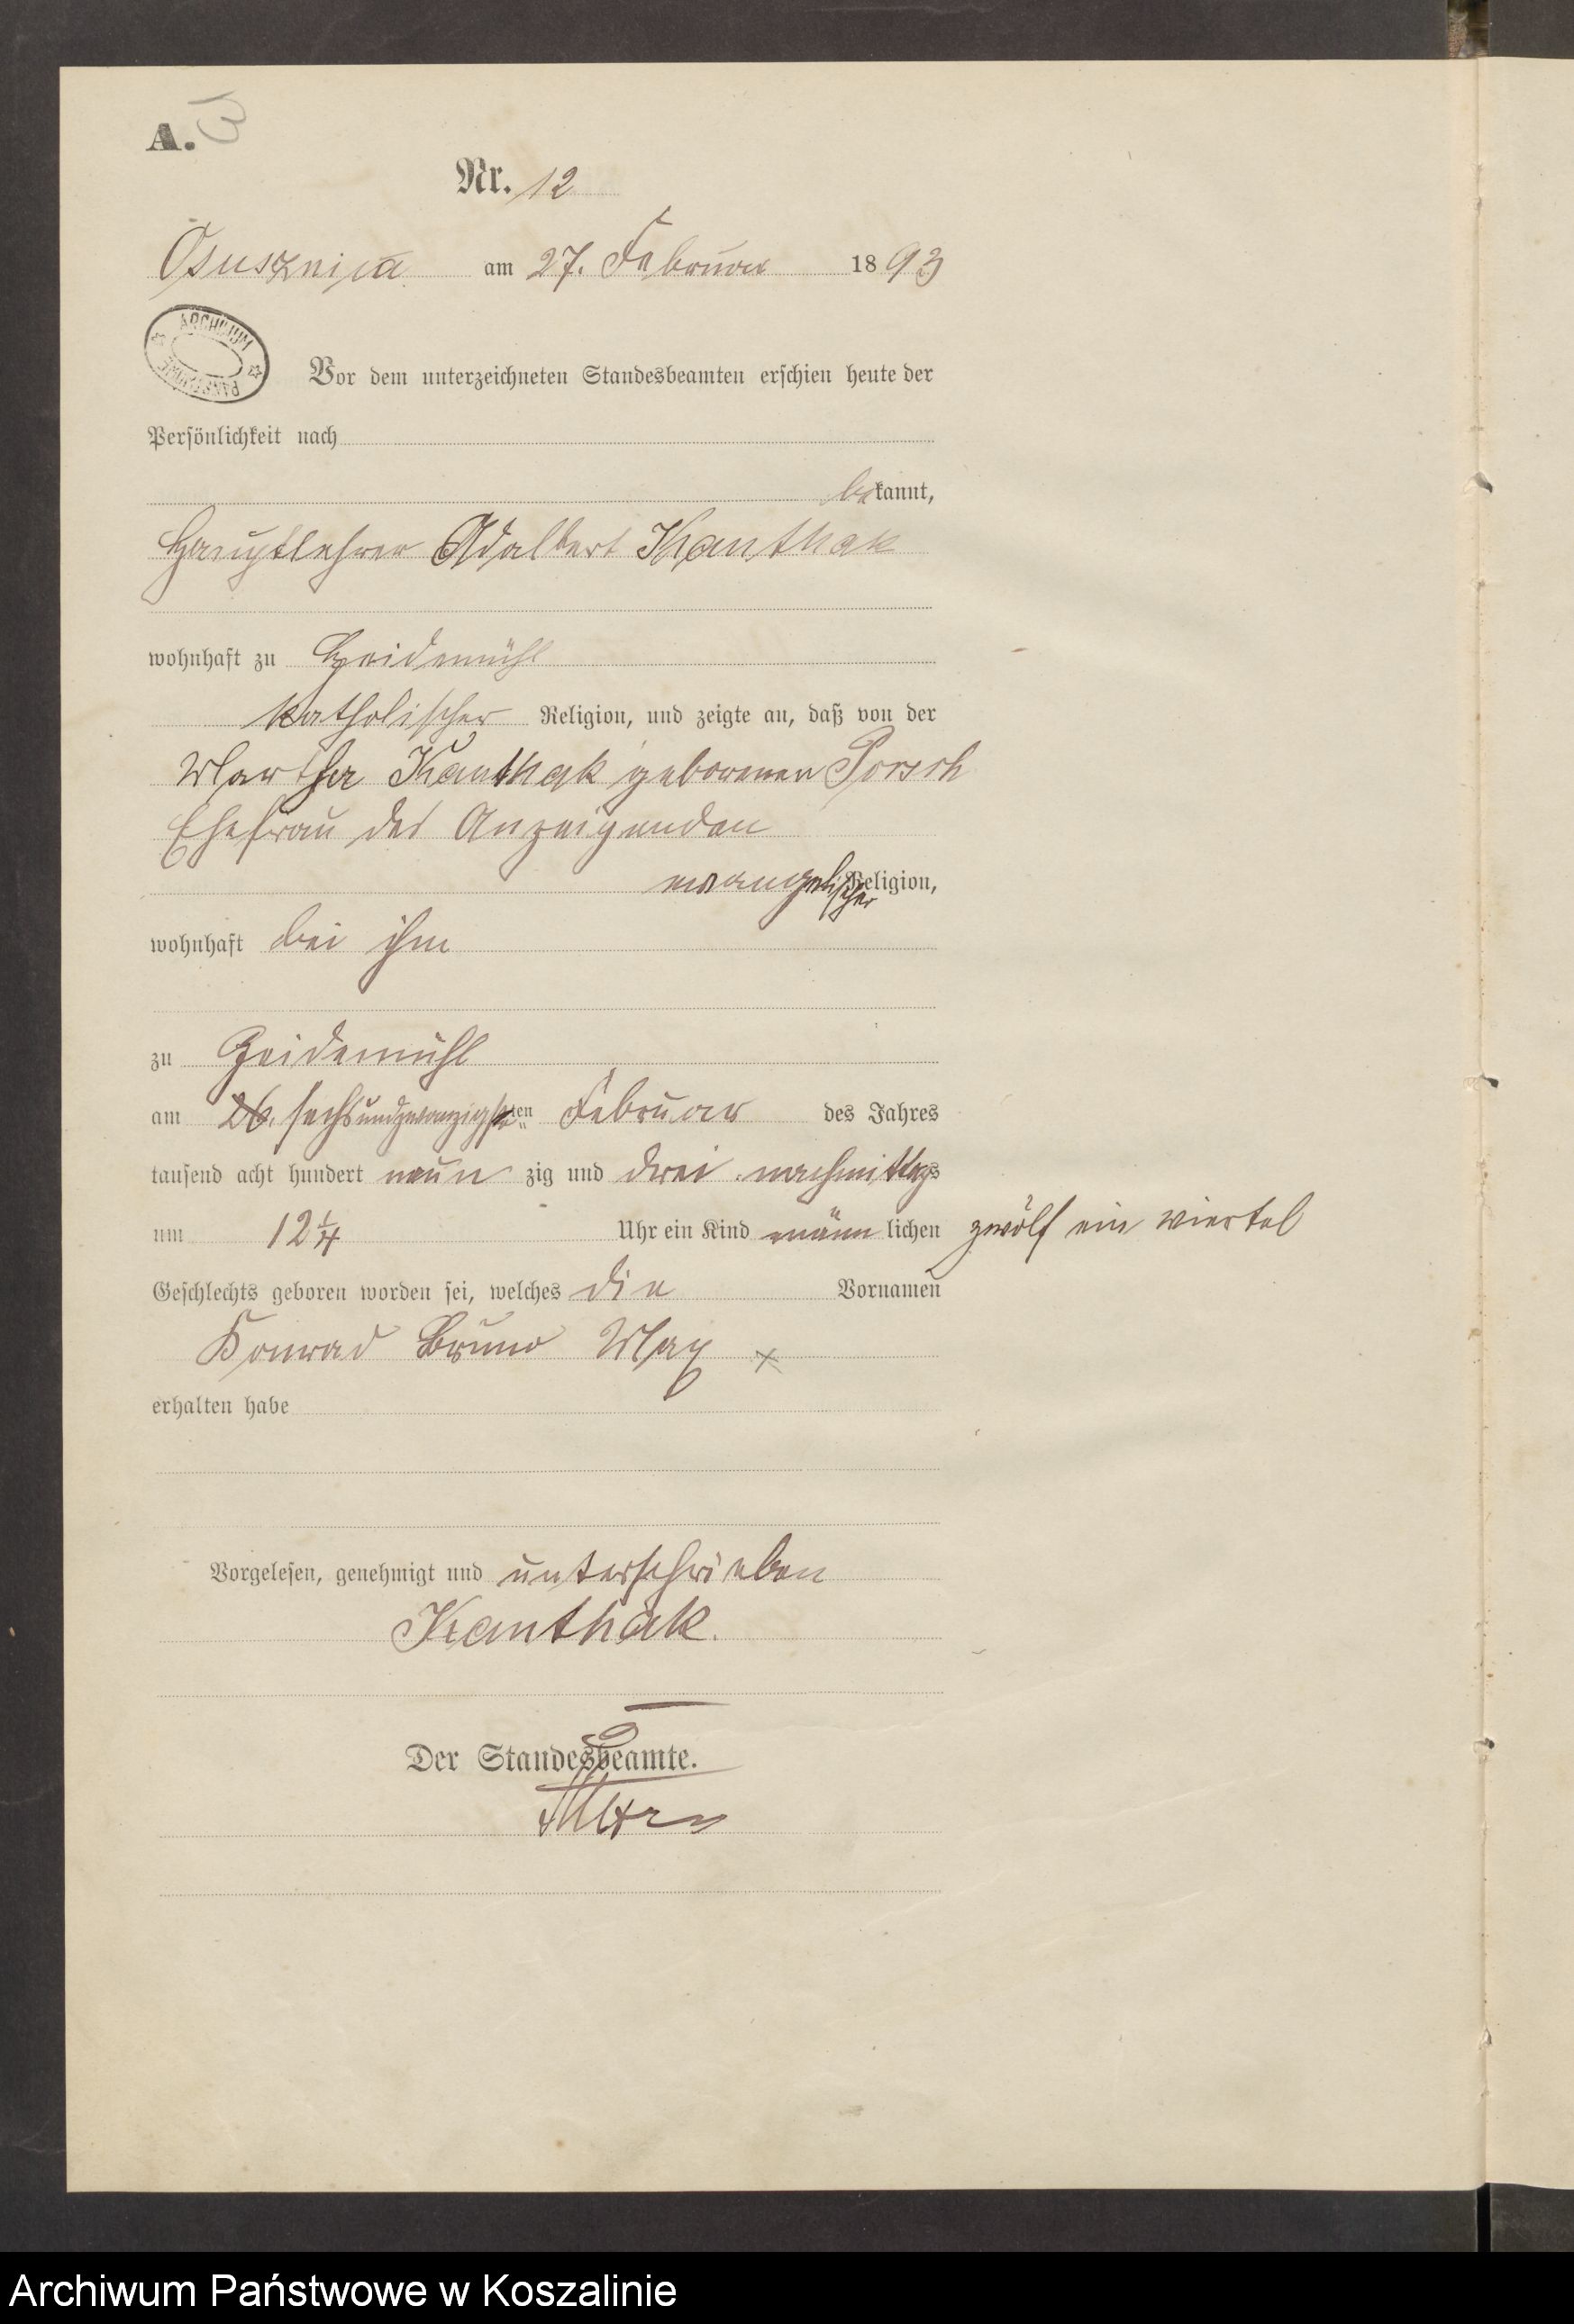 A. 13
Nr. 12
Osusznica am 27. Februar 1893
ARCHIWUM
Vor dem unterzeichneten Standesbeamten erschien heute der
Persönlichkeit nach
bekannt,
Hauptlehrer Adalbert Kanthak
wohnhaft zu Heidemühl
katholischer Religion, und zeigte an, daß von der
Martha Kanthak geborenen Porsch
Ehefrau des Anzeigenden
evangelischer Religion,
wohnhaft bei ihm
zu Heidemühl
am 26. sechsundzwanzigsten Februar des Jahres
tausend acht hundert neun zig und drei nachmittags
um 12 1/4 Uhr ein Kind männ lichen zwölf ein viertel
Geschlechts geboren worden sei, welches die Vornamen
Konrad Bruno Max x
erhalten habe
Vorgelesen, genehmigt und unterschrieben
Kanthak.
Der Standesbeamte.
Archiwum Państwowe w Koszalinie